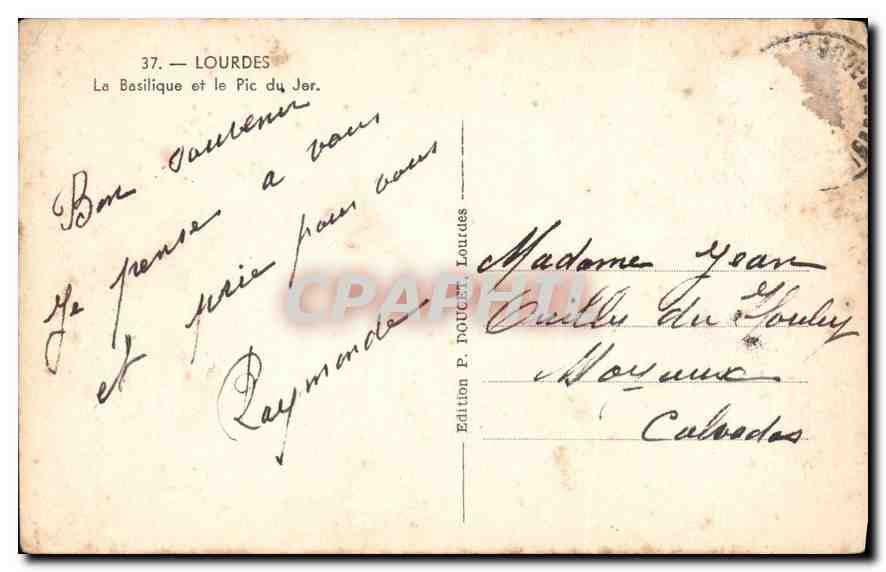 37. — LOURDES
La Basilique et le Pic du Jer.
Bon souvenir
Je penses a vous
et prie pour vous
Raymonde
Edition P. DOUCET, Lourdes
Madame Jean
du
Moyaux
Calvados
CPAPHIL